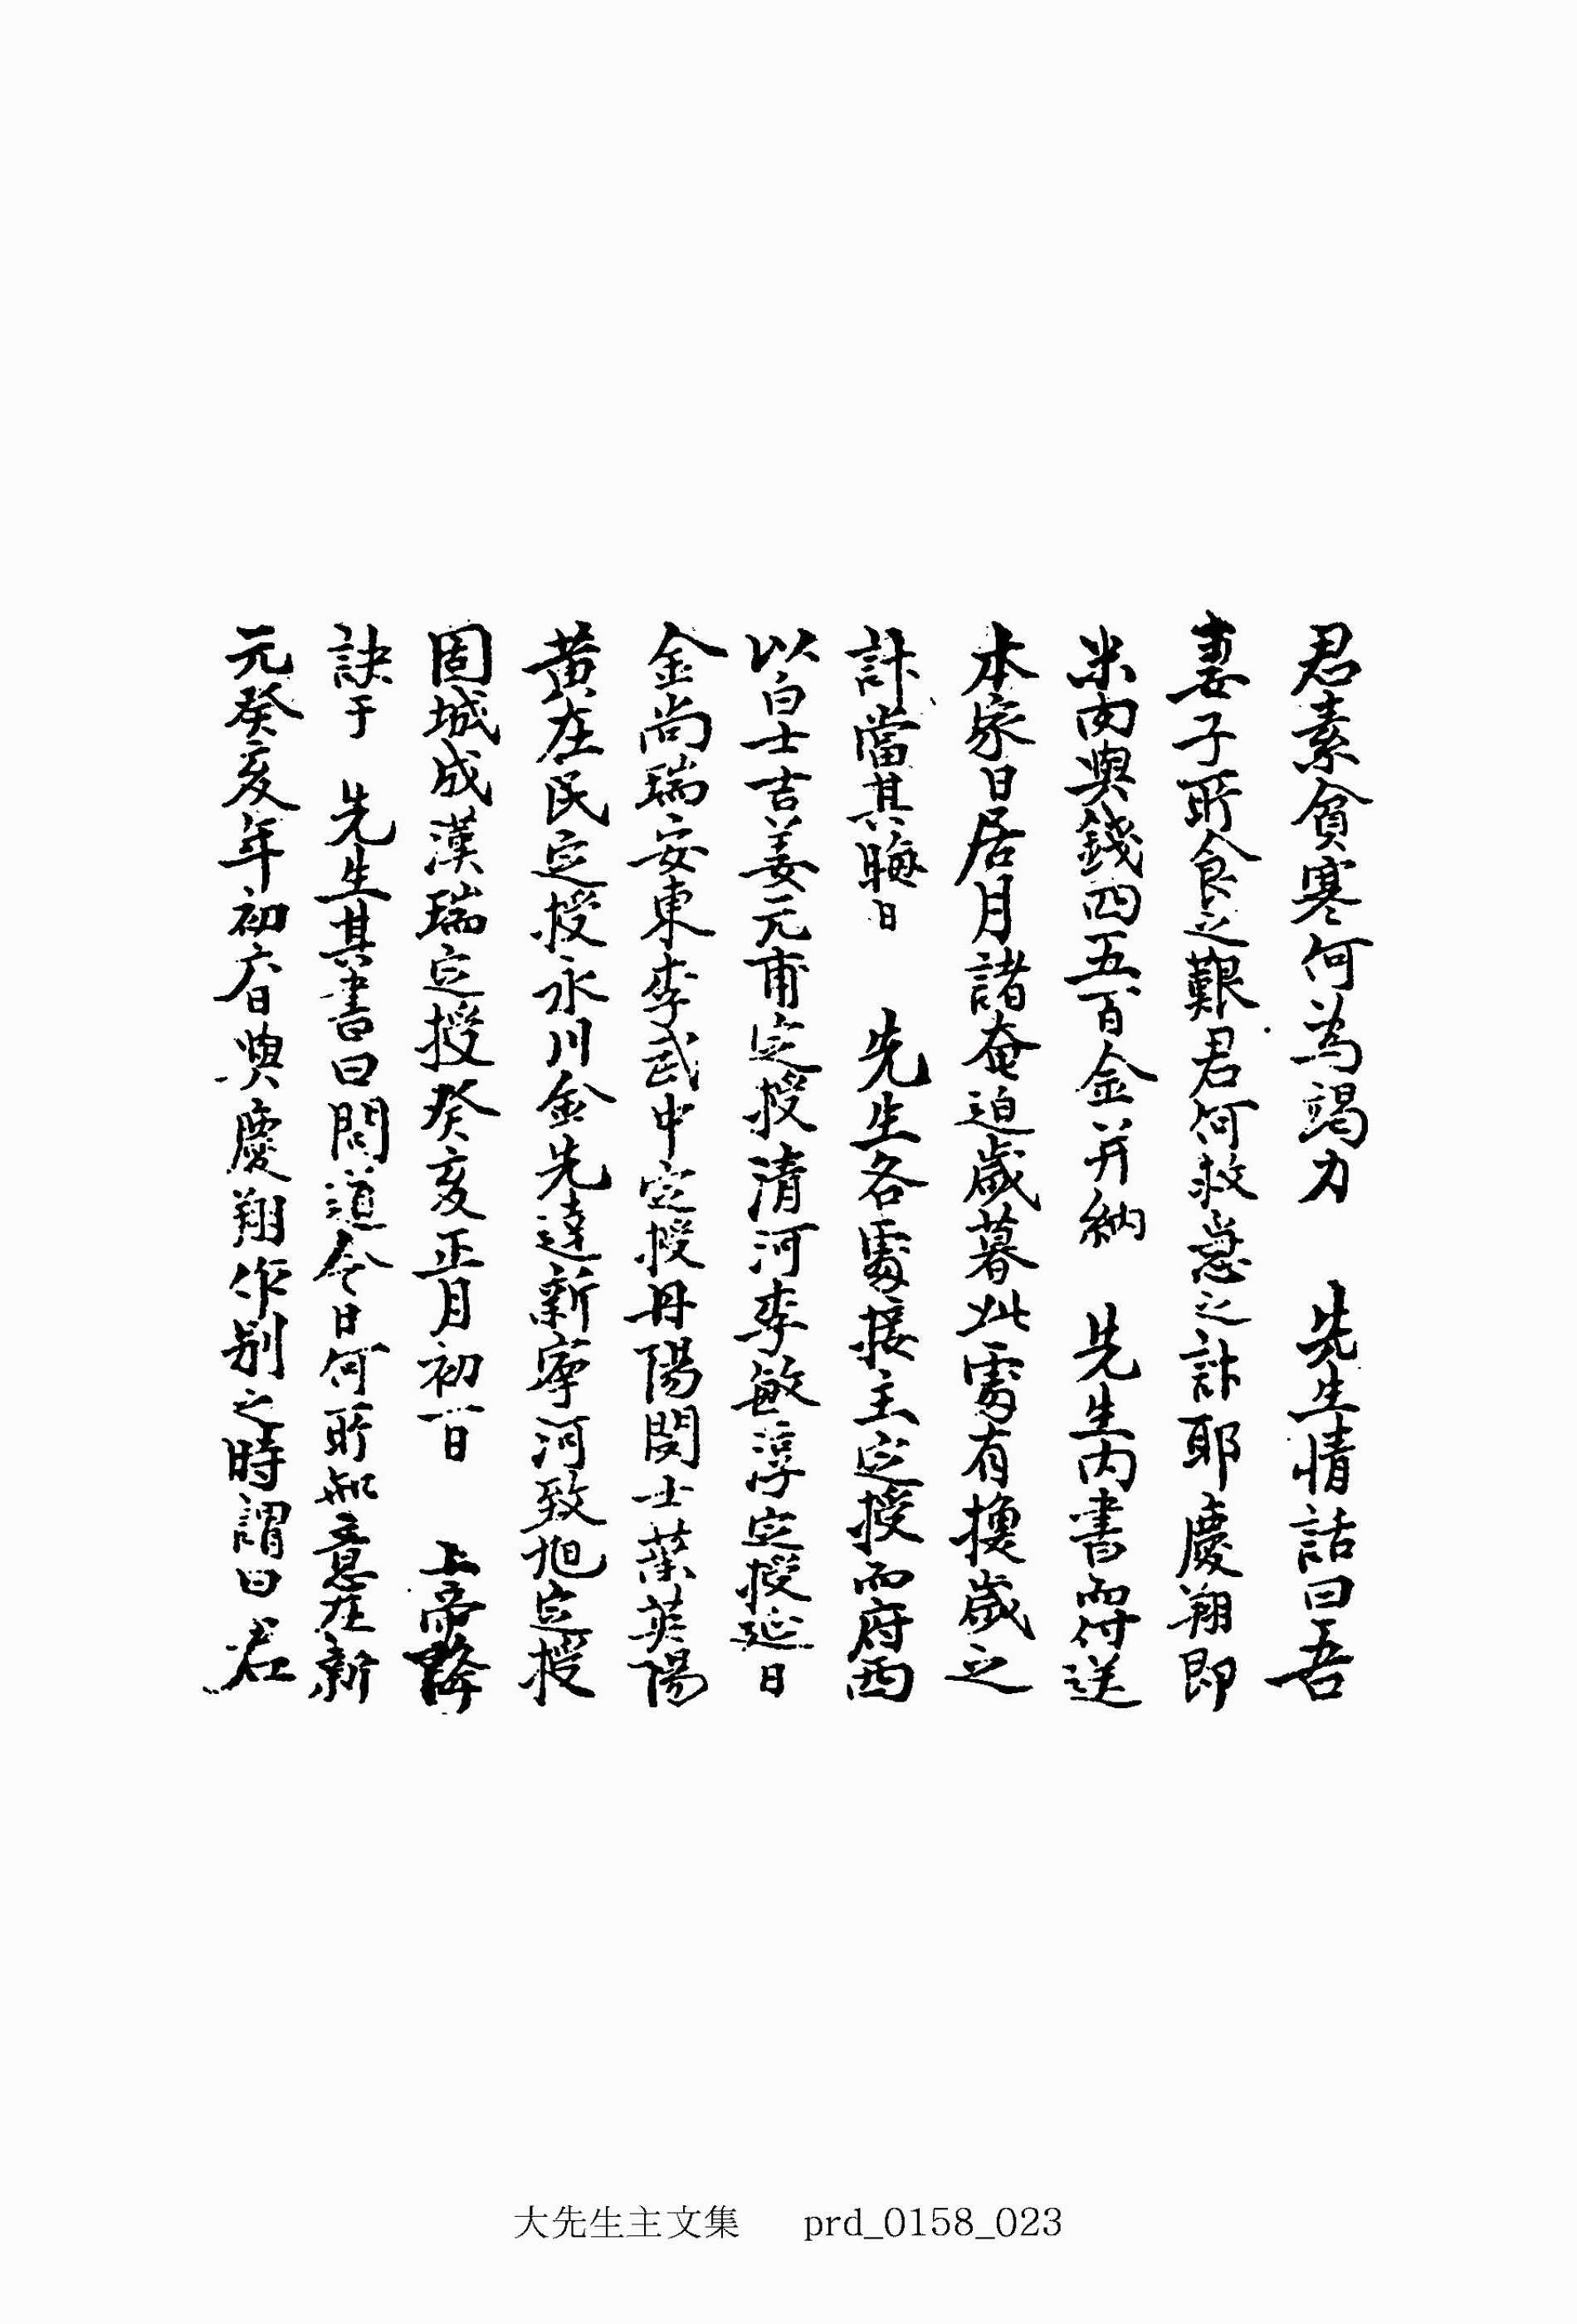 君素貧寒何為竭力 先生情話曰吾
妻子所食之艱君何救急之計耶慶翔即
米肉與錢四五百金并納 先生內書而付送
本家日居月諸奄迫歲暮此處有換歲之
計當其晦日 先生各處接主定授而府西
以白士吉姜元甫定授清河李敏淳定授延日
金尚瑞安東李武中定授丹陽閔士葉英陽
黃在民定授永川金先達新寧河致旭定授
固城成漢瑞定授癸亥正月初一日 上帝降
訣于 先生其書曰問道今日何所知意在新
元癸亥年初六日與慶翔作別之時謂曰君
大先生主文集 prd_0158_023